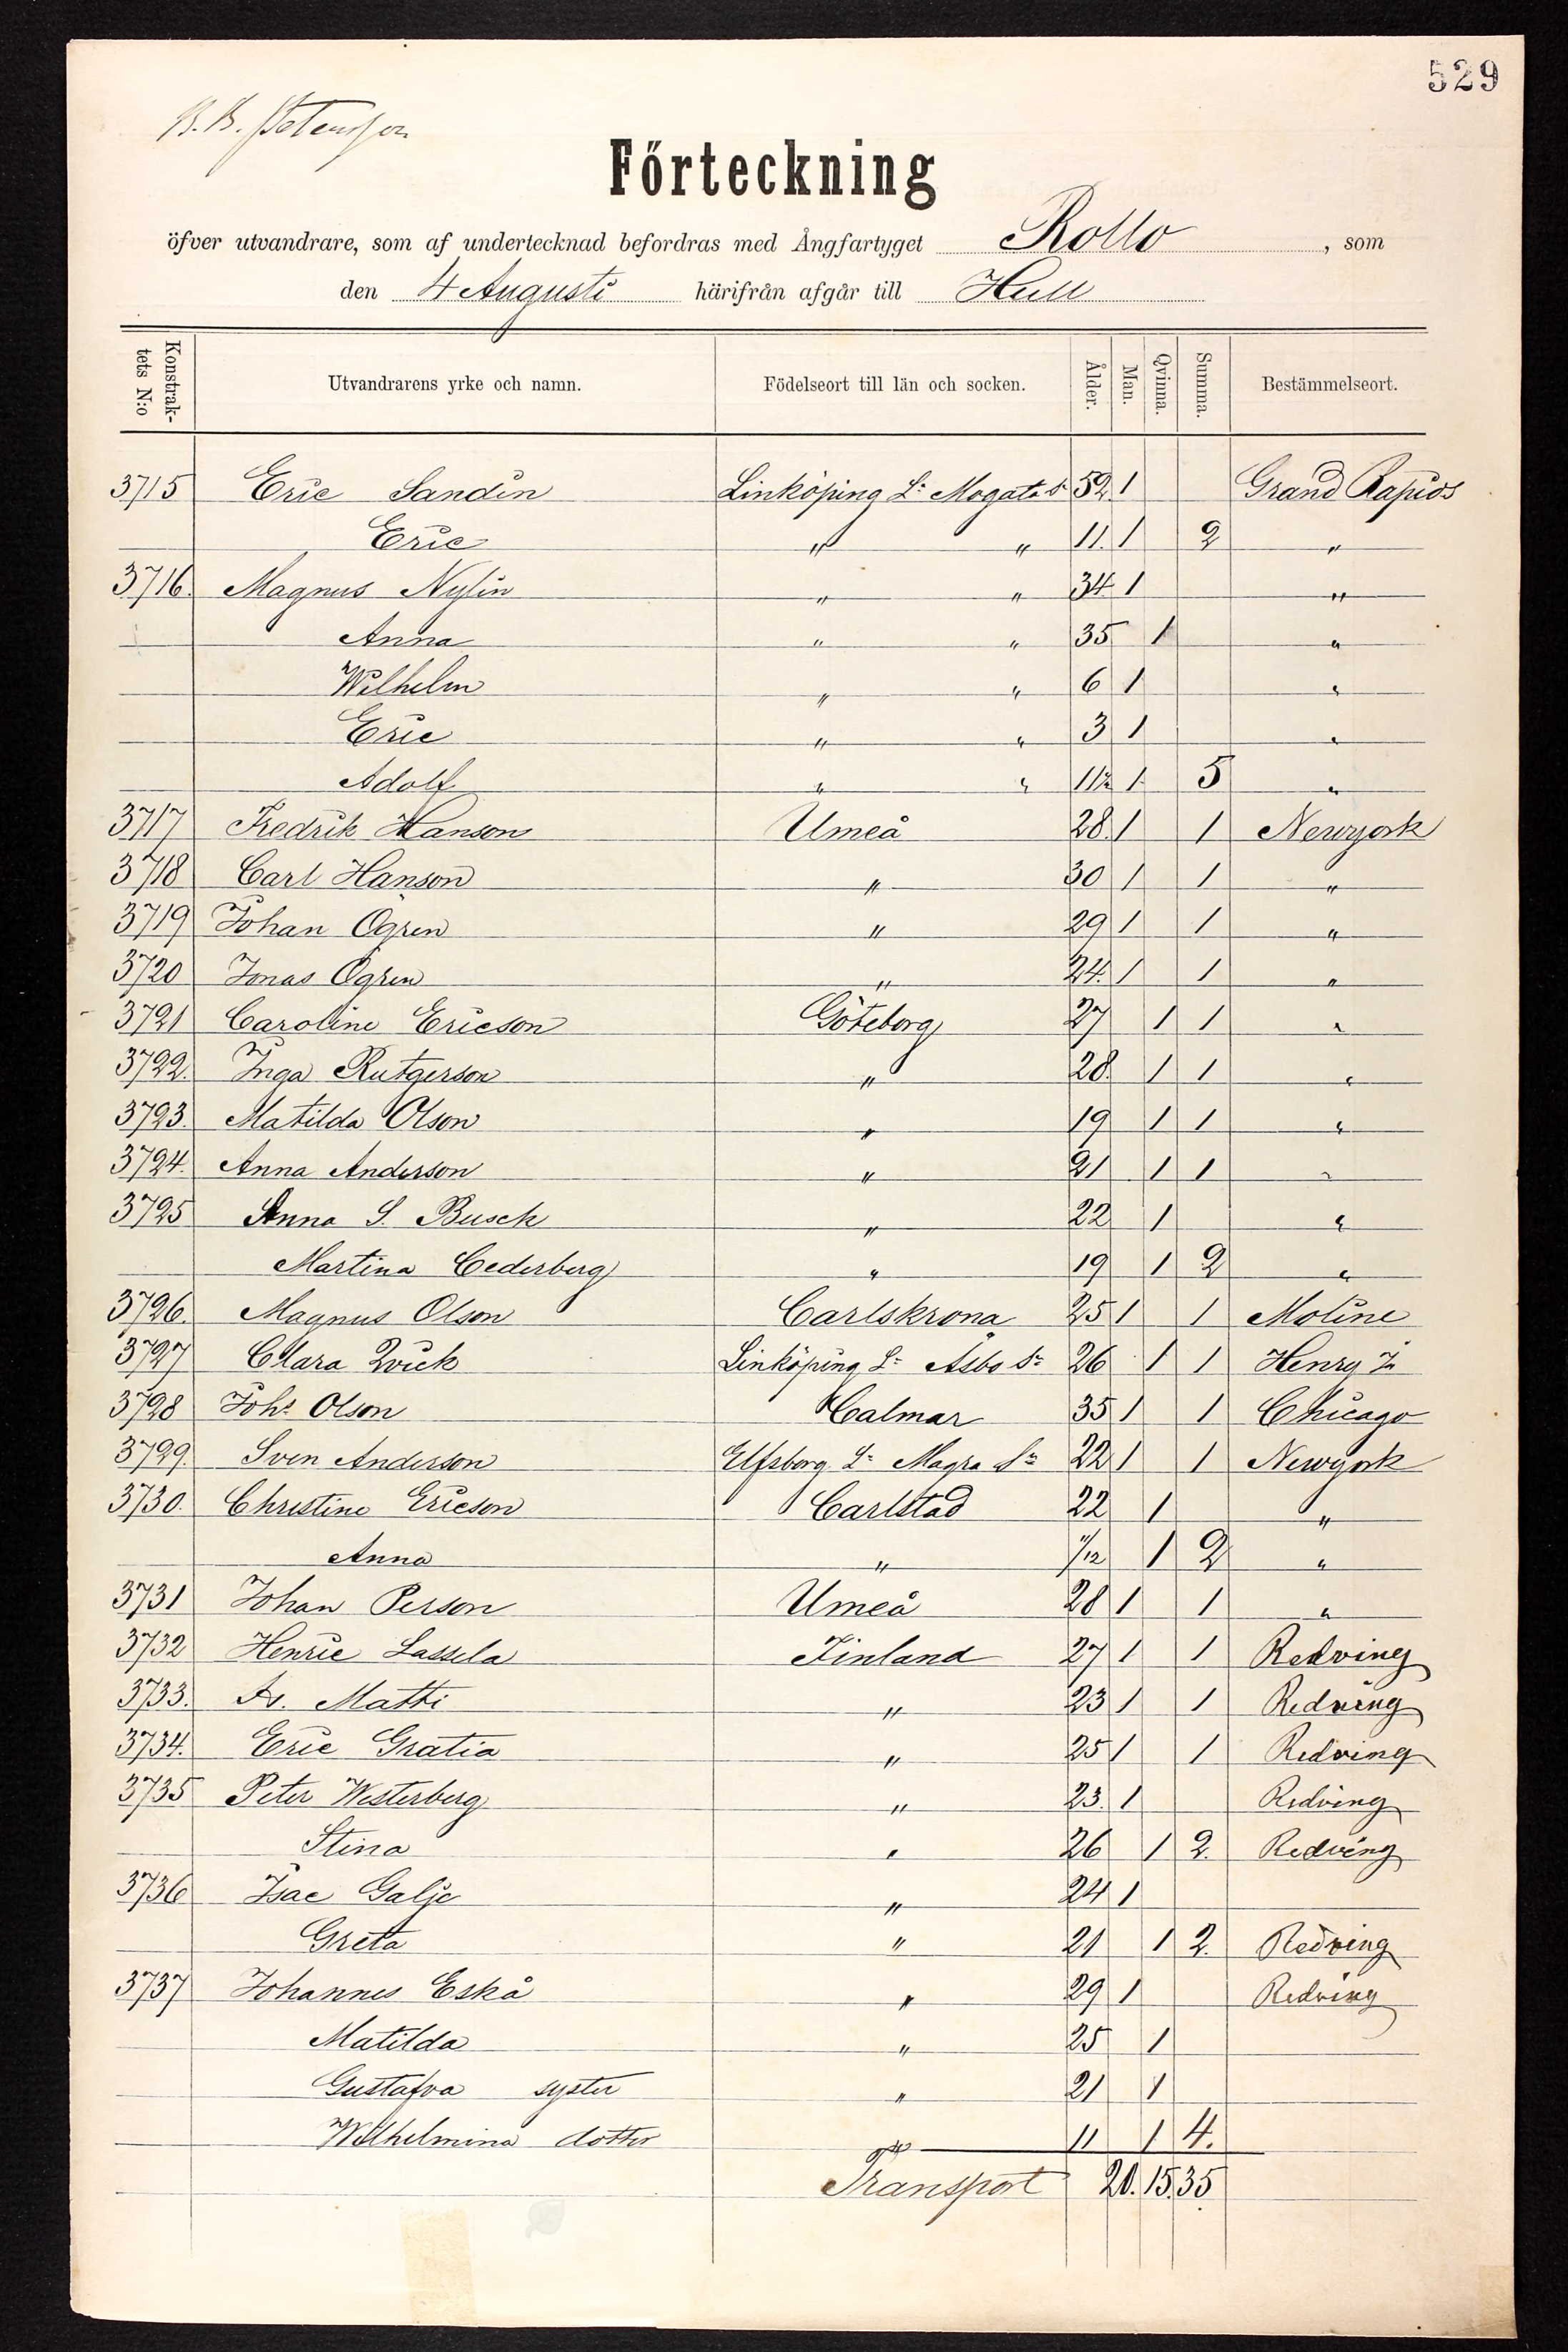 529
B. B. Peterson
Förteckning
öfver utvandrare, som af undertecknad befordras med Ångfartyget Rollo, som
den 4 Augusti härifrån afgår till Hull
Konstrak-tets N:o Utvandrarens yrke och namn. Födelseort till län och socken. Ålder. Man. Qvinna. Summa. Bestämmelseort.
3715 Eric Sandin Linköping L: Mogata S 52 1 Grand Rapids
Eric " " 11. 1 2 "
3716. Magnus Nylin " " 34 1 "
Anna " " 35 1 "
Wilhelm " " 6 1 "
Eric " " 3 1 "
Adolf " " 1 5 "
3717 Fredrik Hanson Umeå 28. 1 1 Newyork
3718 Carl Hanson " 30 1 1 "
3719 Johan Ögren " 29 1 1 "
3720 Jonas Ögren " 24. 1 1 "
3721 Caroline Ericson Göteborg 27 1 1 "
3722. Inga Rutgerson " 28. 1 1 "
3723. Matilda Olson " 19 1 1 "
3724. Anna Anderson " 21 1 1 "
3725 Anna S. Busck " 22 1 "
Martina Cederberg " 19 1 2 "
3726. Magnus Olson Carlskrona 25 1 1 Moline
3727 Clara Quick Linköping L: Åsbo S: 26 1 1 Henry
3728 Johs Olson Calmar 35 1 1 Chicago
3729. Sven Anderson Elfsborg L: Magra S: 22 1 1 Newyork
3730. Christine Ericson Carlstad 22 1 "
Anna " 11/12 1 2 "
3731 Johan Person Umeå 28 1 1 "
3732 Henric Lassela Finland 27 1 1 Redving
3733. Matti " 23 1 1 Redving
3734. Eric Gratia " 25 1 1 Redving
3735 Peter Westerberg " 23. 1 Redving
Stina " 26 1 2. Redving
3736 Isac Galje " 24 1
Greta " 21 1 2. Redving
3737 Johannes Eskå " 29 1 Redving
Matilda " 25 1
Gustafva syster " 21 1
Wilhelmina dotter " 11 1 4.
Transport 20. 15. 35